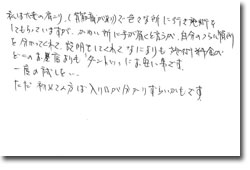 私は大変の肩こり、(首筋痛があり)で色々な所に行き施術を
してもらっていますが、かゆい所に手が届くと言うか、自分のつらい箇所
を分かってくれて、説明もしてくれてなによりも施術料金が
どこのお店よりもダントツに安いです。
一度お試しを…
ただ初めての方は入り口が分かりずらいかもです